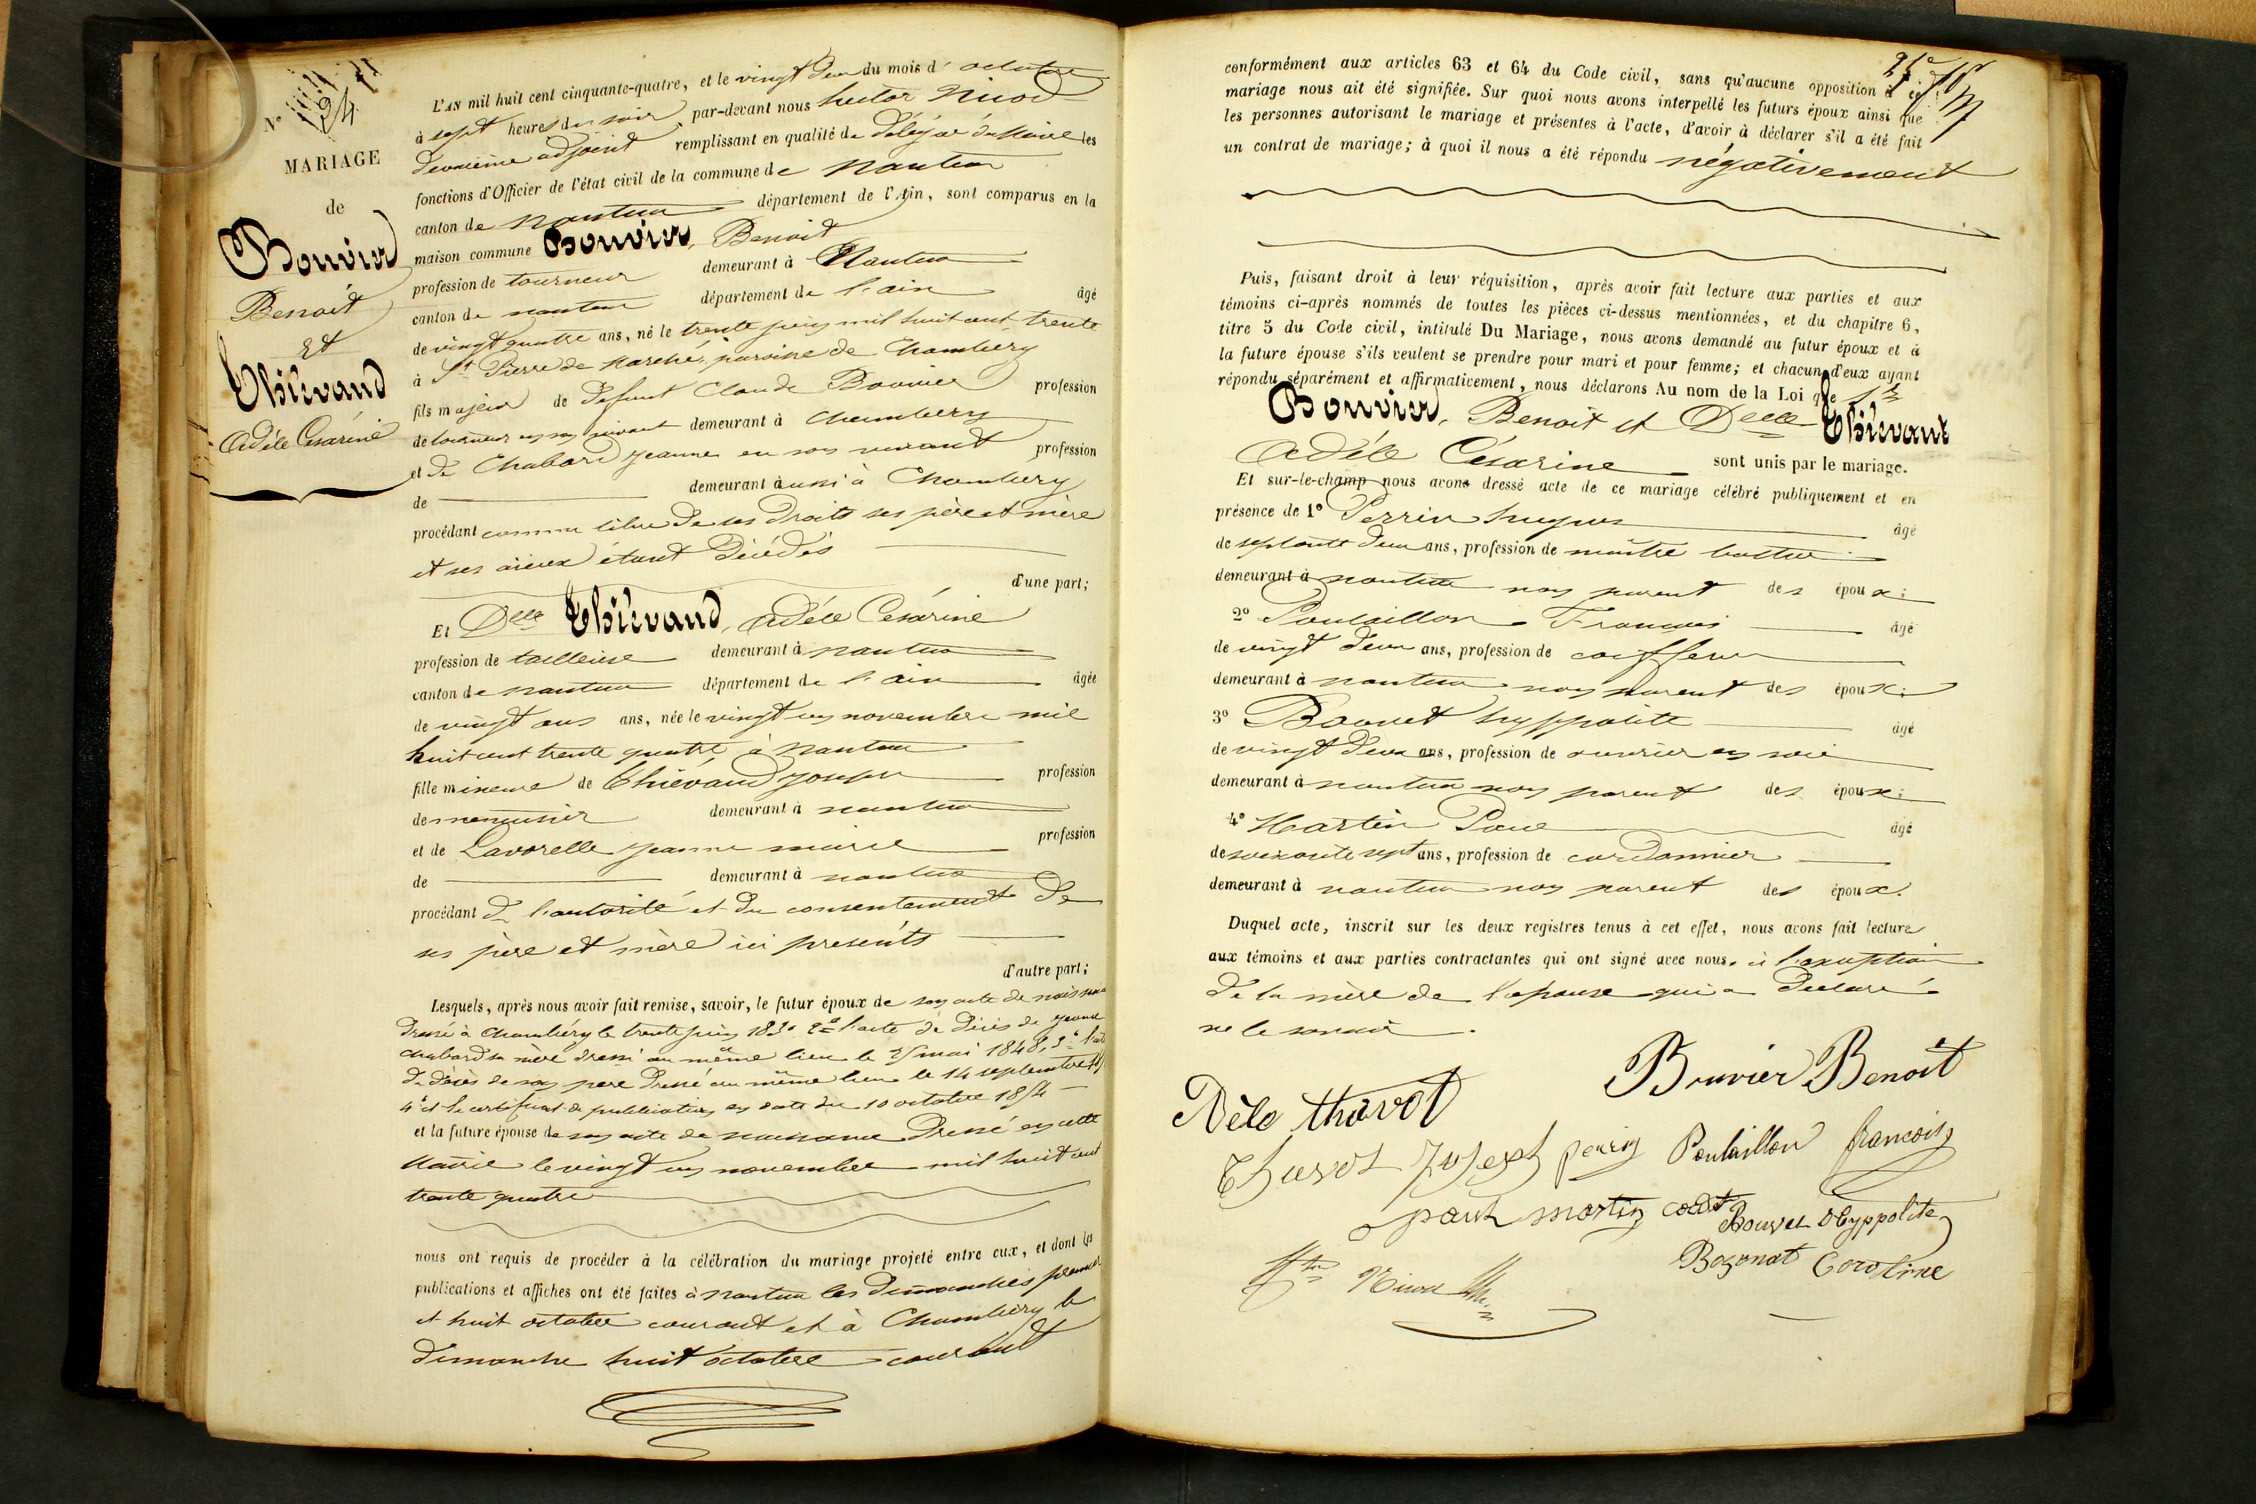 N° 24
MARIAGE
de
Bouvier
Benoit
et
Thiévand
Adèle Césarine
L'AN mil huit cent cinquante-quatre, et le vingt deux du mois d'octobre
à sept heures du soir, par-devant nous hector Nicod
deuxième adjoint remplissant en qualité de délégué du Maire les
fonctions d'Officier de l'état civil de la commune de Nantua
canton de Nantua département de l'Ain, sont comparus en la
maison commune Bouvier, Benoit
profession de tourneur demeurant à Nantua
canton de nantua département de l'ain âgé
de vingt quatre ans, né le trente juin mil huit cent trente
à St Pierre de Marché, paroisse de Chambery
fils majeur de défunt Claude Bouvier profession
de tourneur en son vivant demeurant à Chambery
et de Chabord jeanne en son vivant profession
de demeurant aussi à Chambery
procédant comme libre de ses droits ses père et mère
et ses aïeux étant décédés
d'une part;
Et Delle Thiévand, Adèle Césarine
profession de tailleuse demeurant à nantua
canton de nantua département de l'ain âgée
de vingt ans ans, née le vingt un novembre mil
huit cent trente quatre, à nantua
fille mineure de Thiévand joseph profession
de menuisier demeurant à nantua
et de Lavorelle jeanne marie profession
de demeurant à nantua
procédant de l'autorité et du consentement de
ses père et mère ici présents
d'autre part;
Lesquels, après nous avoir fait remise, savoir, le futur époux de son acte de naissance
dressé à Chambéry le trente juin 1830 2° l'acte de décès de jeanne
chabord sa mère dressé au même lieu le mai 1848, 3° l'acte
de décès de son père dressé au même lieu le 14 septembre
4° et le certificat de publication en date du 10 octobre 1854
et la future épouse de son acte de naissance dressé en cette
Mairie le vingt un novembre mil huit cent
trente quatre
nous ont requis de procéder à la célébration du mariage projeté entre eux, et dont les
publications et affiches ont été faites à nantua les dimanches premier
et huit octobre courant et à Chambéry le
dimanche huit octobre courant
conformément aux articles 63 et 64 du Code civil, sans qu'aucune opposition à ce
mariage nous ait été signifiée. Sur quoi nous avons interpellé les futurs époux ainsi que
les personnes autorisant le mariage et présentes à l'acte, d'avoir à déclarer s'il a été fait
un contrat de mariage; à quoi il nous a été répondu négativement
Puis, faisant droit à leur réquisition, après avoir fait lecture aux parties et aux
témoins ci-après nommés de toutes les pièces ci-dessus mentionnées, et du chapitre 6,
titre 5 du Code civil, intitulé Du Mariage, nous avons demandé au futur époux et à
la future épouse s'ils veulent se prendre pour mari et pour femme; et chacun d'eux ayant
répondu séparément et affirmativement, nous déclarons Au nom de la Loi que Sr
Bouvier, Benoit et Delle Thiévant
Adéle Césarine sont unis par le mariage.
Et sur-le-champ nous avons dressé acte de ce mariage célébré publiquement et en
présence de 1° Perrin hugues âgé
de septante deux ans, profession de maître bottier
demeurant à nantua non parent des époux;
2° Poulaillon François âgé
de vingt deux ans, profession de coiffeur
demeurant à nantua non parent des époux;
3° Bouvet hyppolite âgé
de vingt deux ans, profession de ouvrier en soie
demeurant à nantua non parent des époux;
4° Martin Paul âgé
de soixante sept ans, profession de cordonnier
demeurant à nantua non parent des époux.
Duquel acte, inscrit sur les deux registres tenus à cet effet, nous avons fait lecture
aux témoins et aux parties contractantes qui ont signé avec nous, à l'exception
de la mère de l'épouse qui a déclaré
ne le savoir.
Bouvier Benoit
Dèle thavot
Thavot Josept perrin Poulaillon francois
paul martin
Bouvet Hyppolite
Bozonat Caroline
Nicod